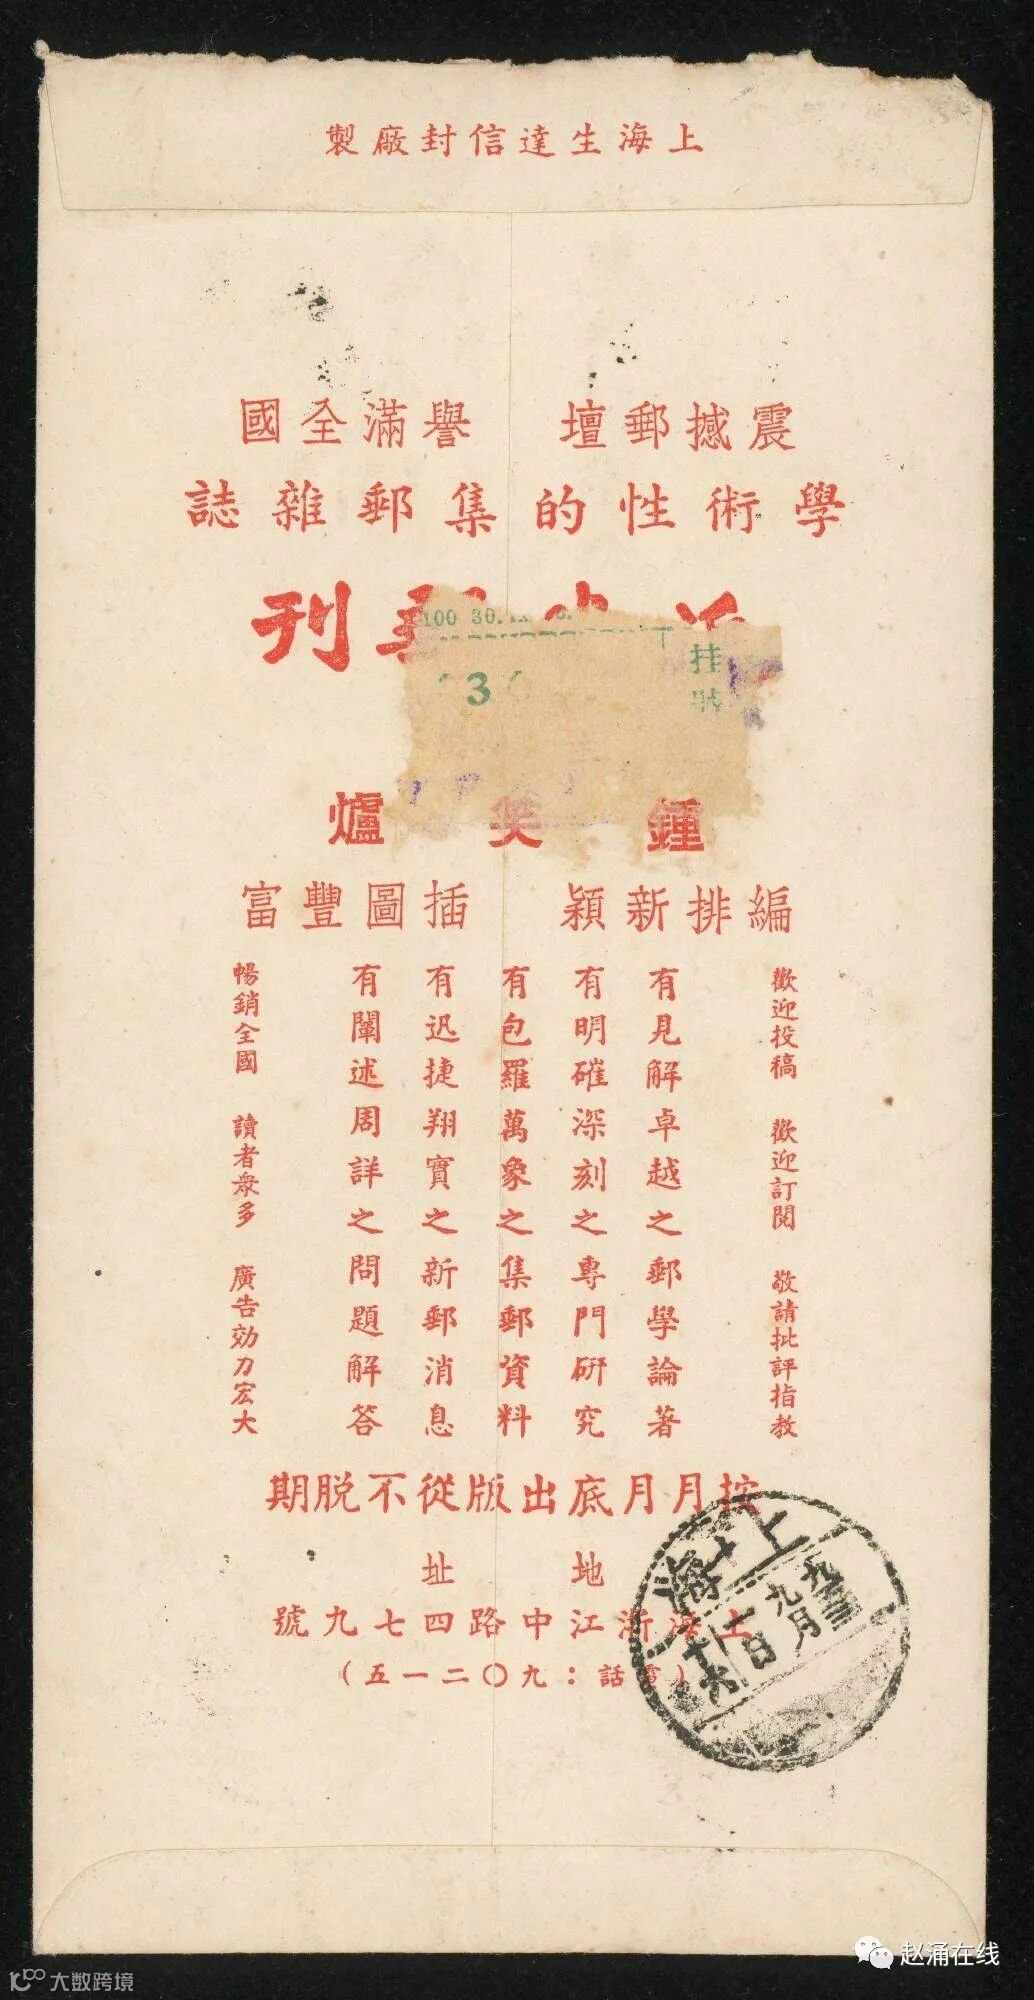 上海生達信封廠製
震撼郵壇　譽滿全國
學術性的集郵雜誌
刊
100 30.
3
挂號
鍾笑爐
編排新穎　插圖豐富
歡迎投稿　歡迎訂閱　敬請批評指教
有見解卓越之郵學論著
有明確深刻之專門研究
有包羅萬象之集郵資料
有迅捷翔實之新郵消息
有闡述周詳之問題解答
暢銷全國　讀者眾多　廣告効力宏大
按月月底出版從不脫期
地址
上海浙江中路四七九號
（電話：九〇二一五）
上海
九月
日
十六
赵涌在线
大数跨境